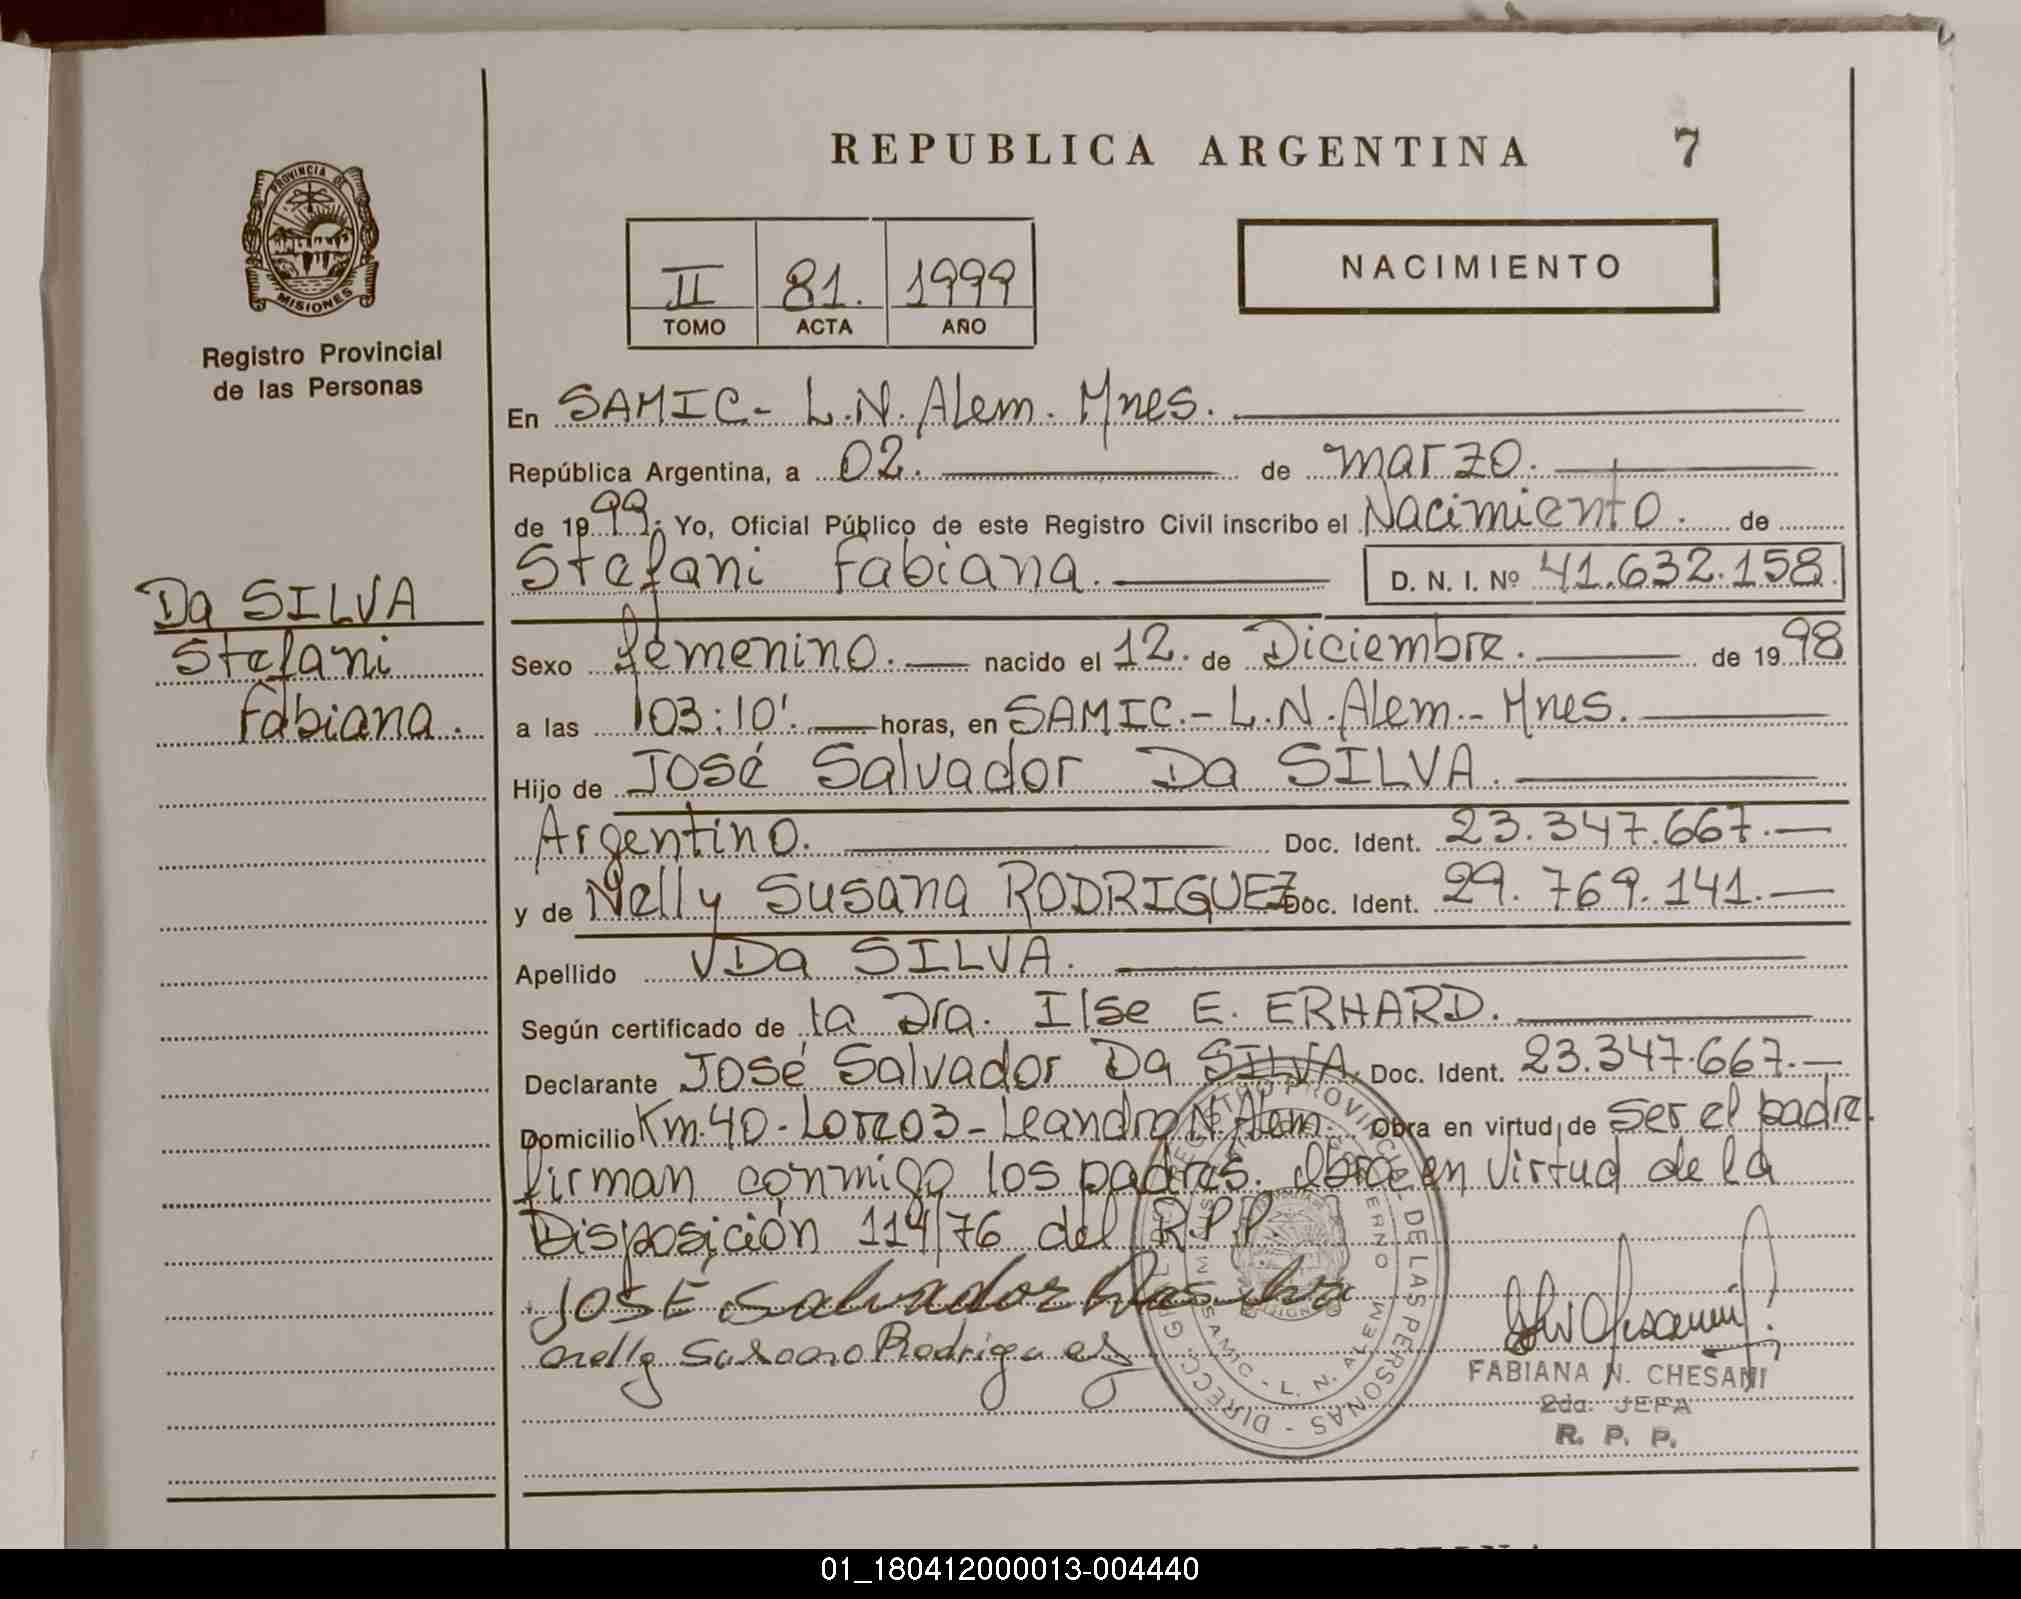 REPUBLICA ARGENTINA 7
PROVINCIA DE
MISIONES
Registro Provincial
de las Personas
II 81. 1999
TOMO ACTA AÑO
NACIMIENTO
En SAMIC - L.N. Alem. Mnes.
República Argentina, a 02. de marzo.
de 1999. Yo, Oficial Público de este Registro Civil inscribo el Nacimiento. de
Stefani Fabiana. D. N. I. Nº 41.632.158
Da SILVA
Stefani
Fabiana.
Sexo femenino. nacido el 12. de Diciembre. de 1998
a las 03:10'. horas, en SAMIC.- L.N. Alem.- Mnes.
Hijo de José Salvador Da SILVA.
Argentino. Doc. Ident. 23.347.667.-
y de Nelly Susana RODRIGUEZ Doc. Ident. 29.769.141.-
Apellido Da SILVA.
Según certificado de la Dra. Ilse E. ERHARD.
Declarante José Salvador Da SILVA. Doc. Ident. 23.347.667.-
Domicilio Km.40 - Lote 03 - Leandro N. Alem. Obra en virtud de Ser el padre.
firman conmigo los padres. Obra en virtud de la
Disposición 114/76 del R.P.P.
JOSÉ Salvador Dasilva
nelly Susana Rodriguez
FABIANA N. CHESANI
2da. JEFA
R. P. P.
DIRECC. GRAL. REGISTRO PROVINCIAL DE LAS PERSONAS -
SAMIC - L. N. ALEM
01_180412000013-004440